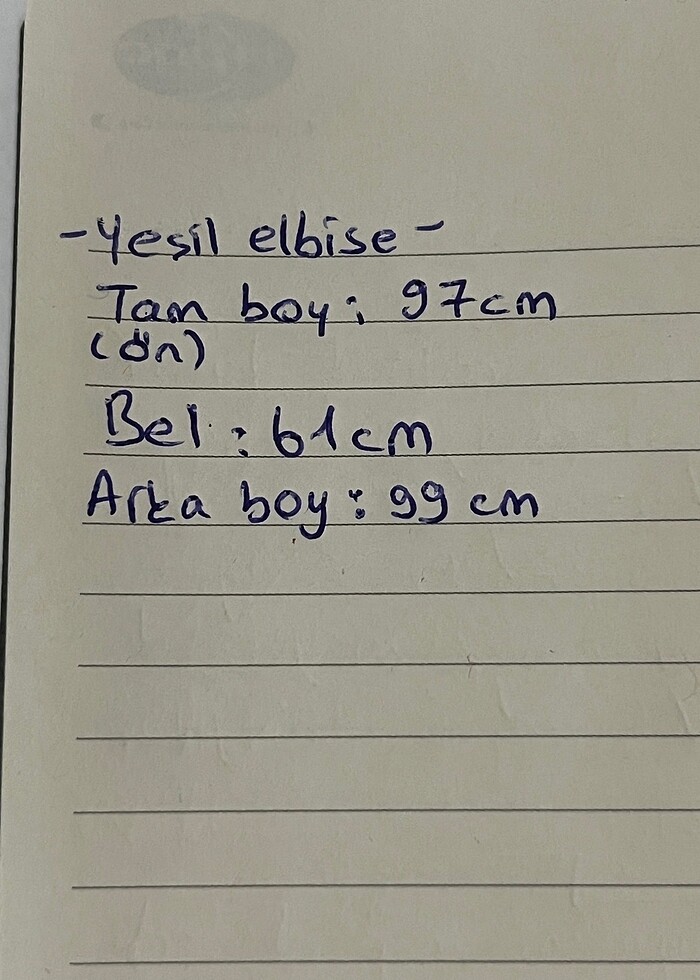 -Yeşil elbise-
Tam boy: 97cm
(ön)
Bel: 61cm
Arka boy: 99 cm